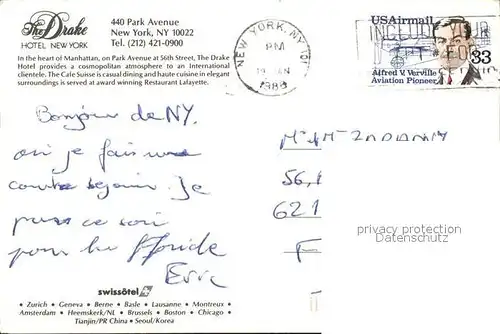 The Drake
HOTEL NEW YORK
440 Park Avenue
New York, NY 10022
Tel. (212) 421-0900
In the heart of Manhattan, on Park Avenue at 56th Street, The Drake
Hotel provides a cosmopolitan atmosphere to an International
clientele. The Cafe Suisse is casual dining and haute cuisine in elegant
surroundings is served at award winning Restaurant Lafayette.
NEW YORK, NY 101
PM
1988
USAirmail
INCLUDE YOUR
33
Alfred V. Verville
Aviation Pioneer
Bonjour de NY.
où je fais une
courte sejour. Je
pars ce soir
pour la Floride
56,
621
F
privacy protection
Datenschutz
swissôtel
• Zurich • Geneva • Berne • Basle • Lausanne • Montreux •
• Amsterdam • Heemskerk/NL • Brussels • Boston • Chicago •
Tianjin/PR China • Seoul/Korea